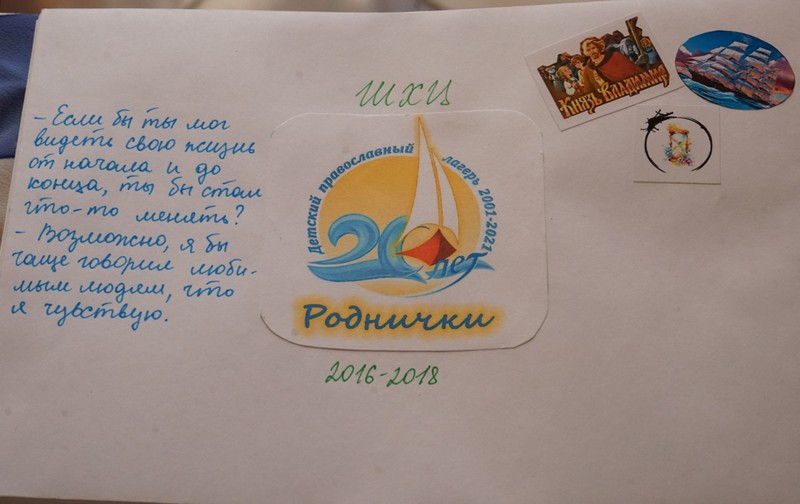 - Если бы ты мог
видеть свою жизнь
от начала и до
конца, ты бы стал
что-то менять?
- Возможно, я бы
чаще говорил люби-
мым людям, что
я чувствую.
ШХЦ
Детский православный лагерь 2001-2021
20 лет
Роднички
2016-2018
Князь Владимир